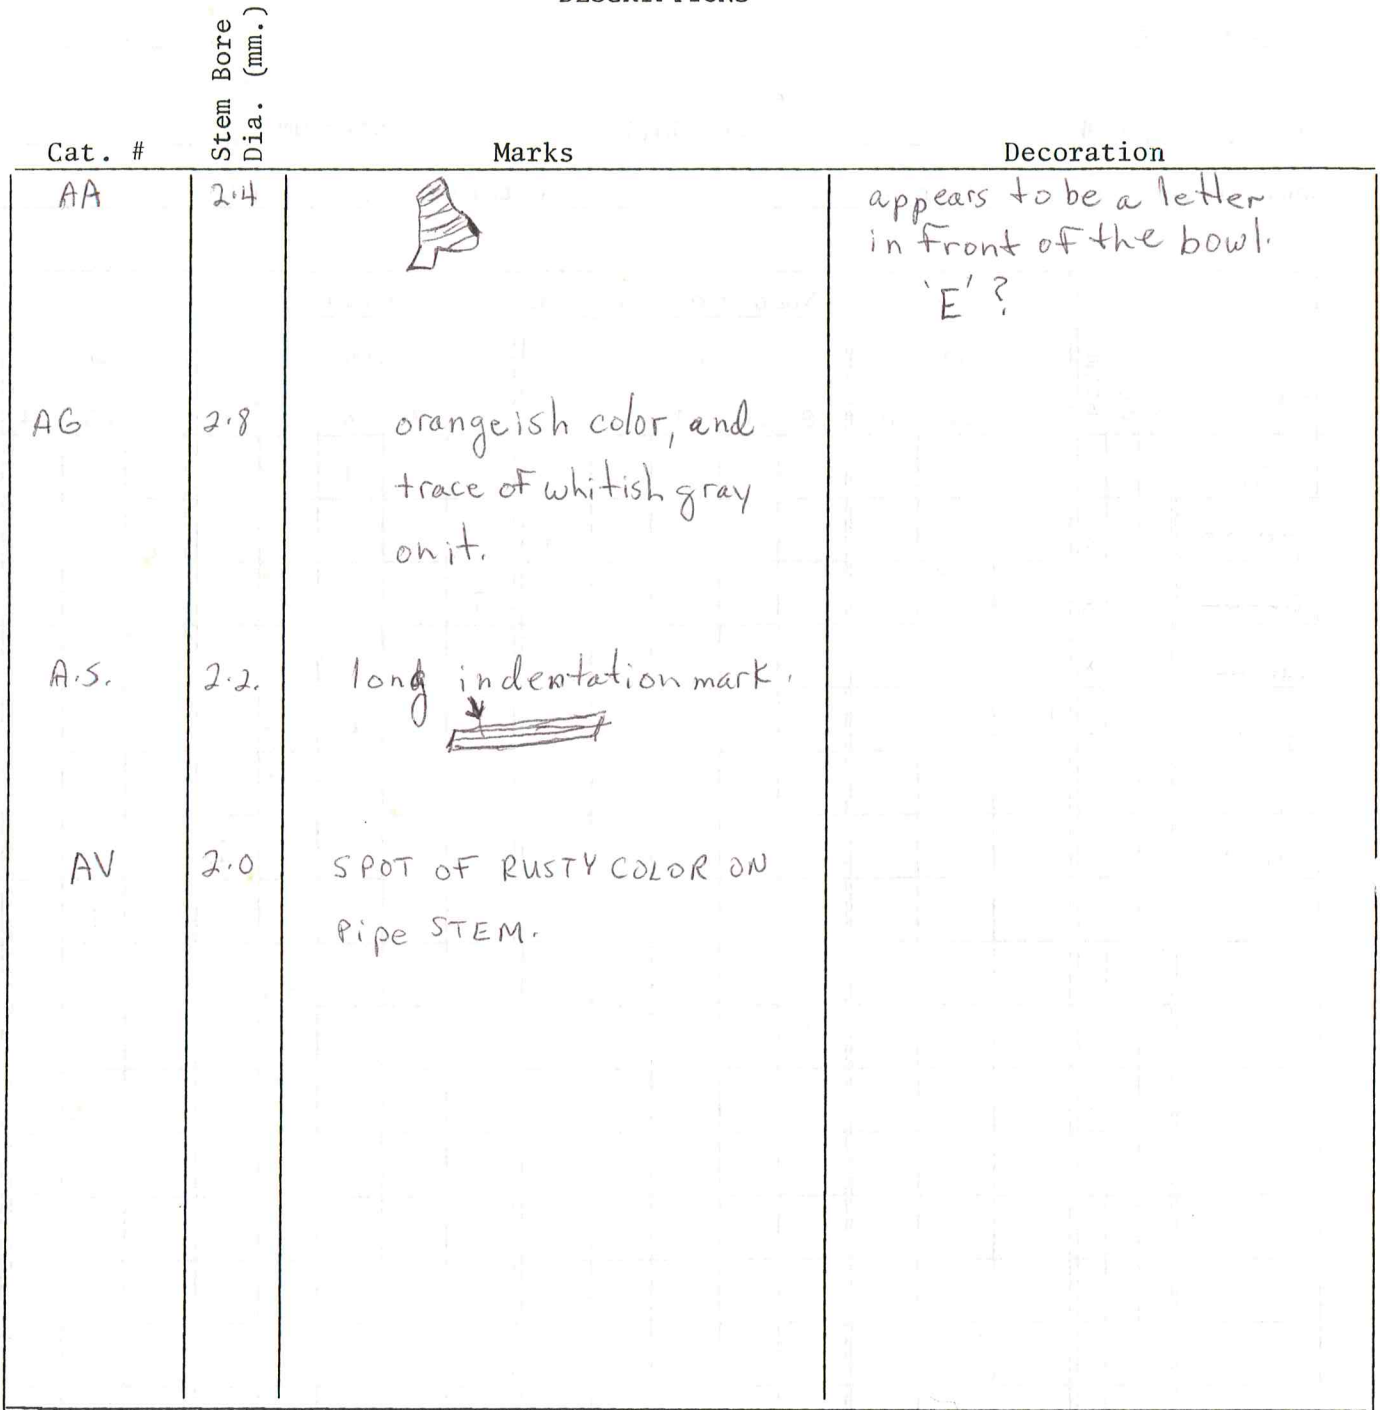 DESCRIPTIONS
Cat. # Stem Bore Dia. (mm.) Marks Decoration
AA 2.4 appears to be a letter
in front of the bowl.
'E' ?
AG 2.8 orangeish color, and
trace of whitish gray
on it.
A.S. 2.2. long indentation mark.
AV 2.0 SPOT OF RUSTY COLOR ON
Pipe STEM.